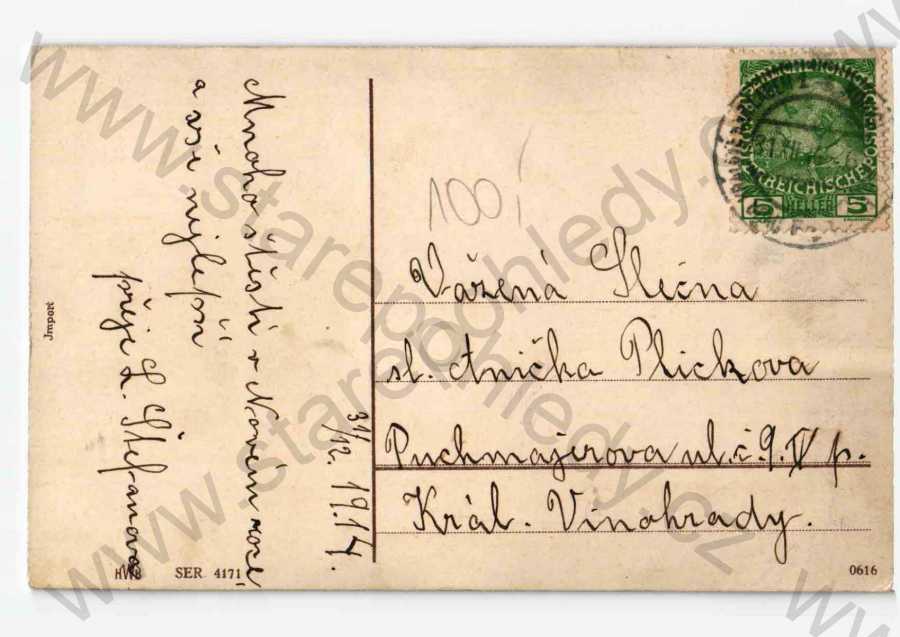 Mnoho štěstí v Novém roce
a vše nejlepší
přeje L. Štefanova
31/12. 1914.
100
Vážená Slečna
sl. Anička Plickova
Puchmajerova ul. č 9. IV p.
Král. Vinohrady.
5 HELLER 5
Import
HWB SER 4171
0616
www.starepohledy.cz